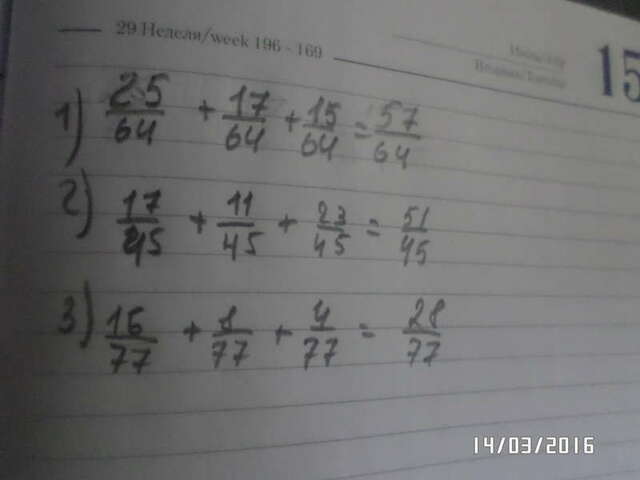 29 Неделя/week 196 - 169
15
1) 25/64 + 17/64 + 15/64 = 57/64
2) 17/45 + 11/45 + 23/45 = 51/45
3) 16/77 + 8/77 + 4/77 = 28/77
14/03/2016